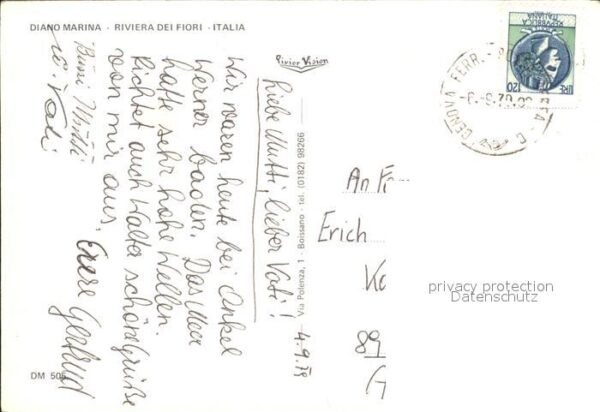 DIANO MARINA · RIVIERA DEI FIORI · ITALIA
Rivier Vision
Via Polenza, 1 - Boissano - tel. (0182) 98266
DM 505
LIRE 120
REPUBBLICA
ITALIANA
GENOVA FERR.
4.9.79
Liebe Mutti, lieber Vati!
Wir waren heute bei Onkel
Werner baden. Das Meer
hatte sehr hohe Wellen.
Richtet auch Walter schöne Grüße
von mir aus.
Eure Gertrud
Bussi Mutti
u. Vati
An Fr
Erich
Ko
89
G
privacy protection
Datenschutz